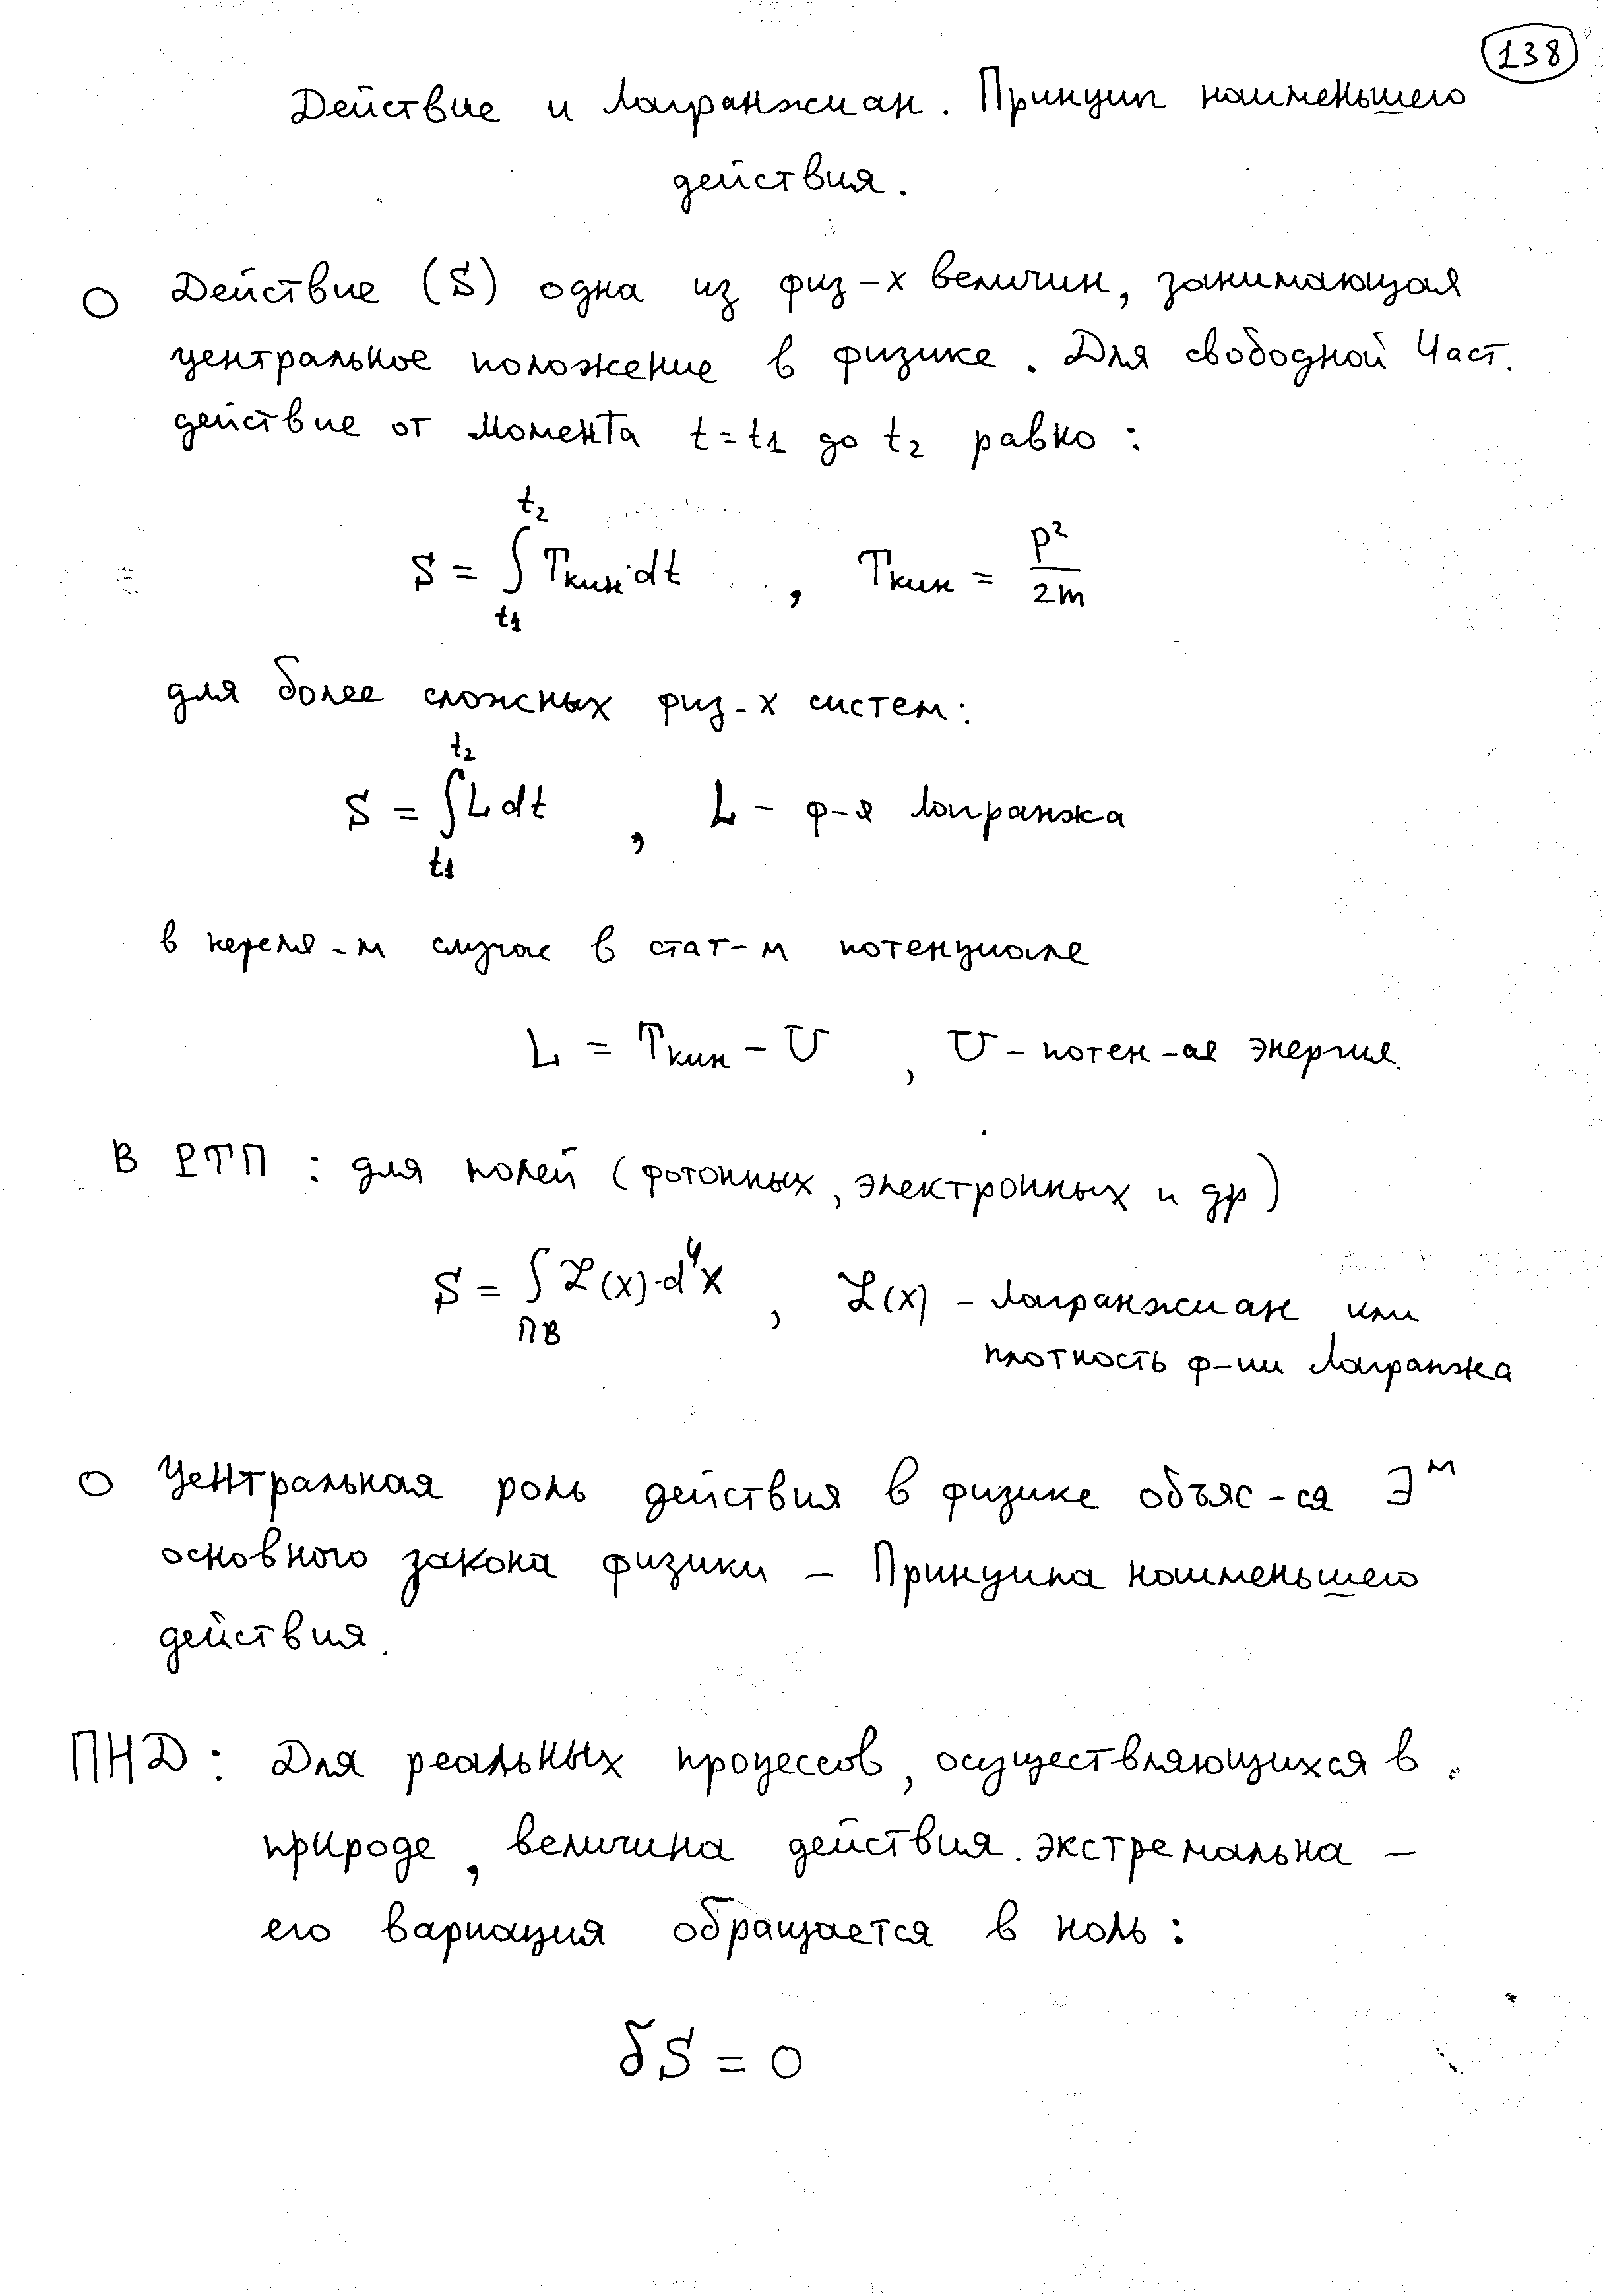 138
Действие и Лагранжиан. Принцип наименьшего
действия.
○ Действие (S) одна из физ-х величин, занимающая
центральное положение в физике. Для свободной част.
действие от момента t=t₁ до t₂ равно:
S = ∫_{t₁}^{t₂} Tкин·dt , Tкин = p²/2m
для более сложных физ-х систем:
S = ∫_{t₁}^{t₂} L dt , L - ф-я Лагранжа
в нереля-м случае в стат-м потенциале
L = Tкин - U , U - потен-ая энергия.
В РТП: для полей (фотонных, электронных и др)
S = ∫_{ПВ} ℒ(x)·d⁴x , ℒ(x) - Лагранжиан или
плотность ф-ии Лагранжа
○ Центральная роль действия в физике объяс-ся ∃ᵐ
основного закона физики - Принципа наименьшего
действия.
ПНД: Для реальных процессов, осуществляющихся в
природе, величина действия экстремальна -
его вариация обращается в ноль:
δS = 0